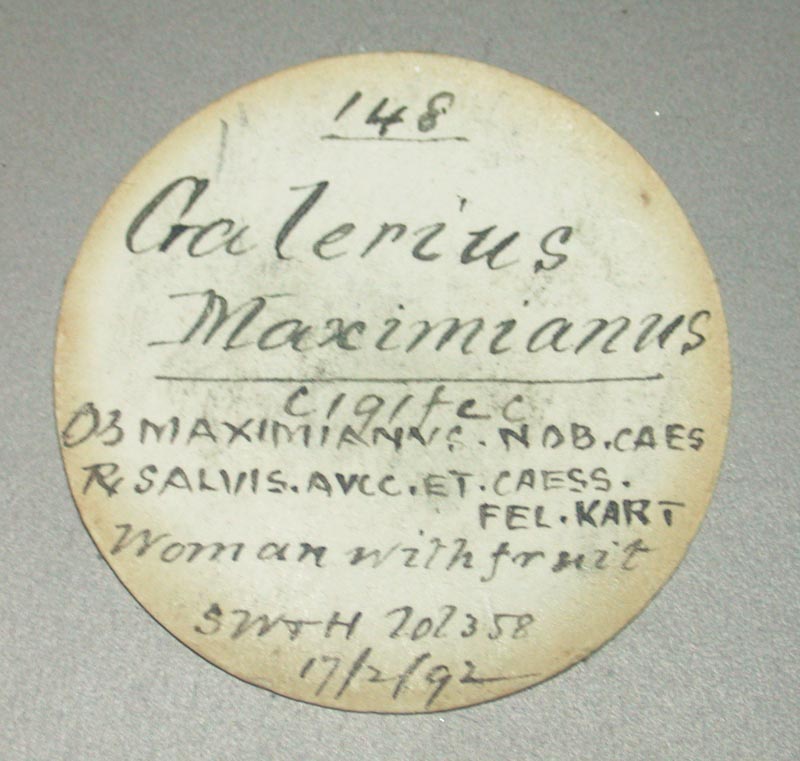 148
Galerius
Maximianus
OB MAXIMIANNS. NOB. CAES
Rx SALVIS. AVCC. ET. CAESS.
FEL. KART
Woman with fruit
SW&H lot 358
17/2/92